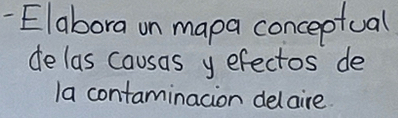 - Elabora un mapa conceptual
de las causas y efectos de
la contaminación del aire.